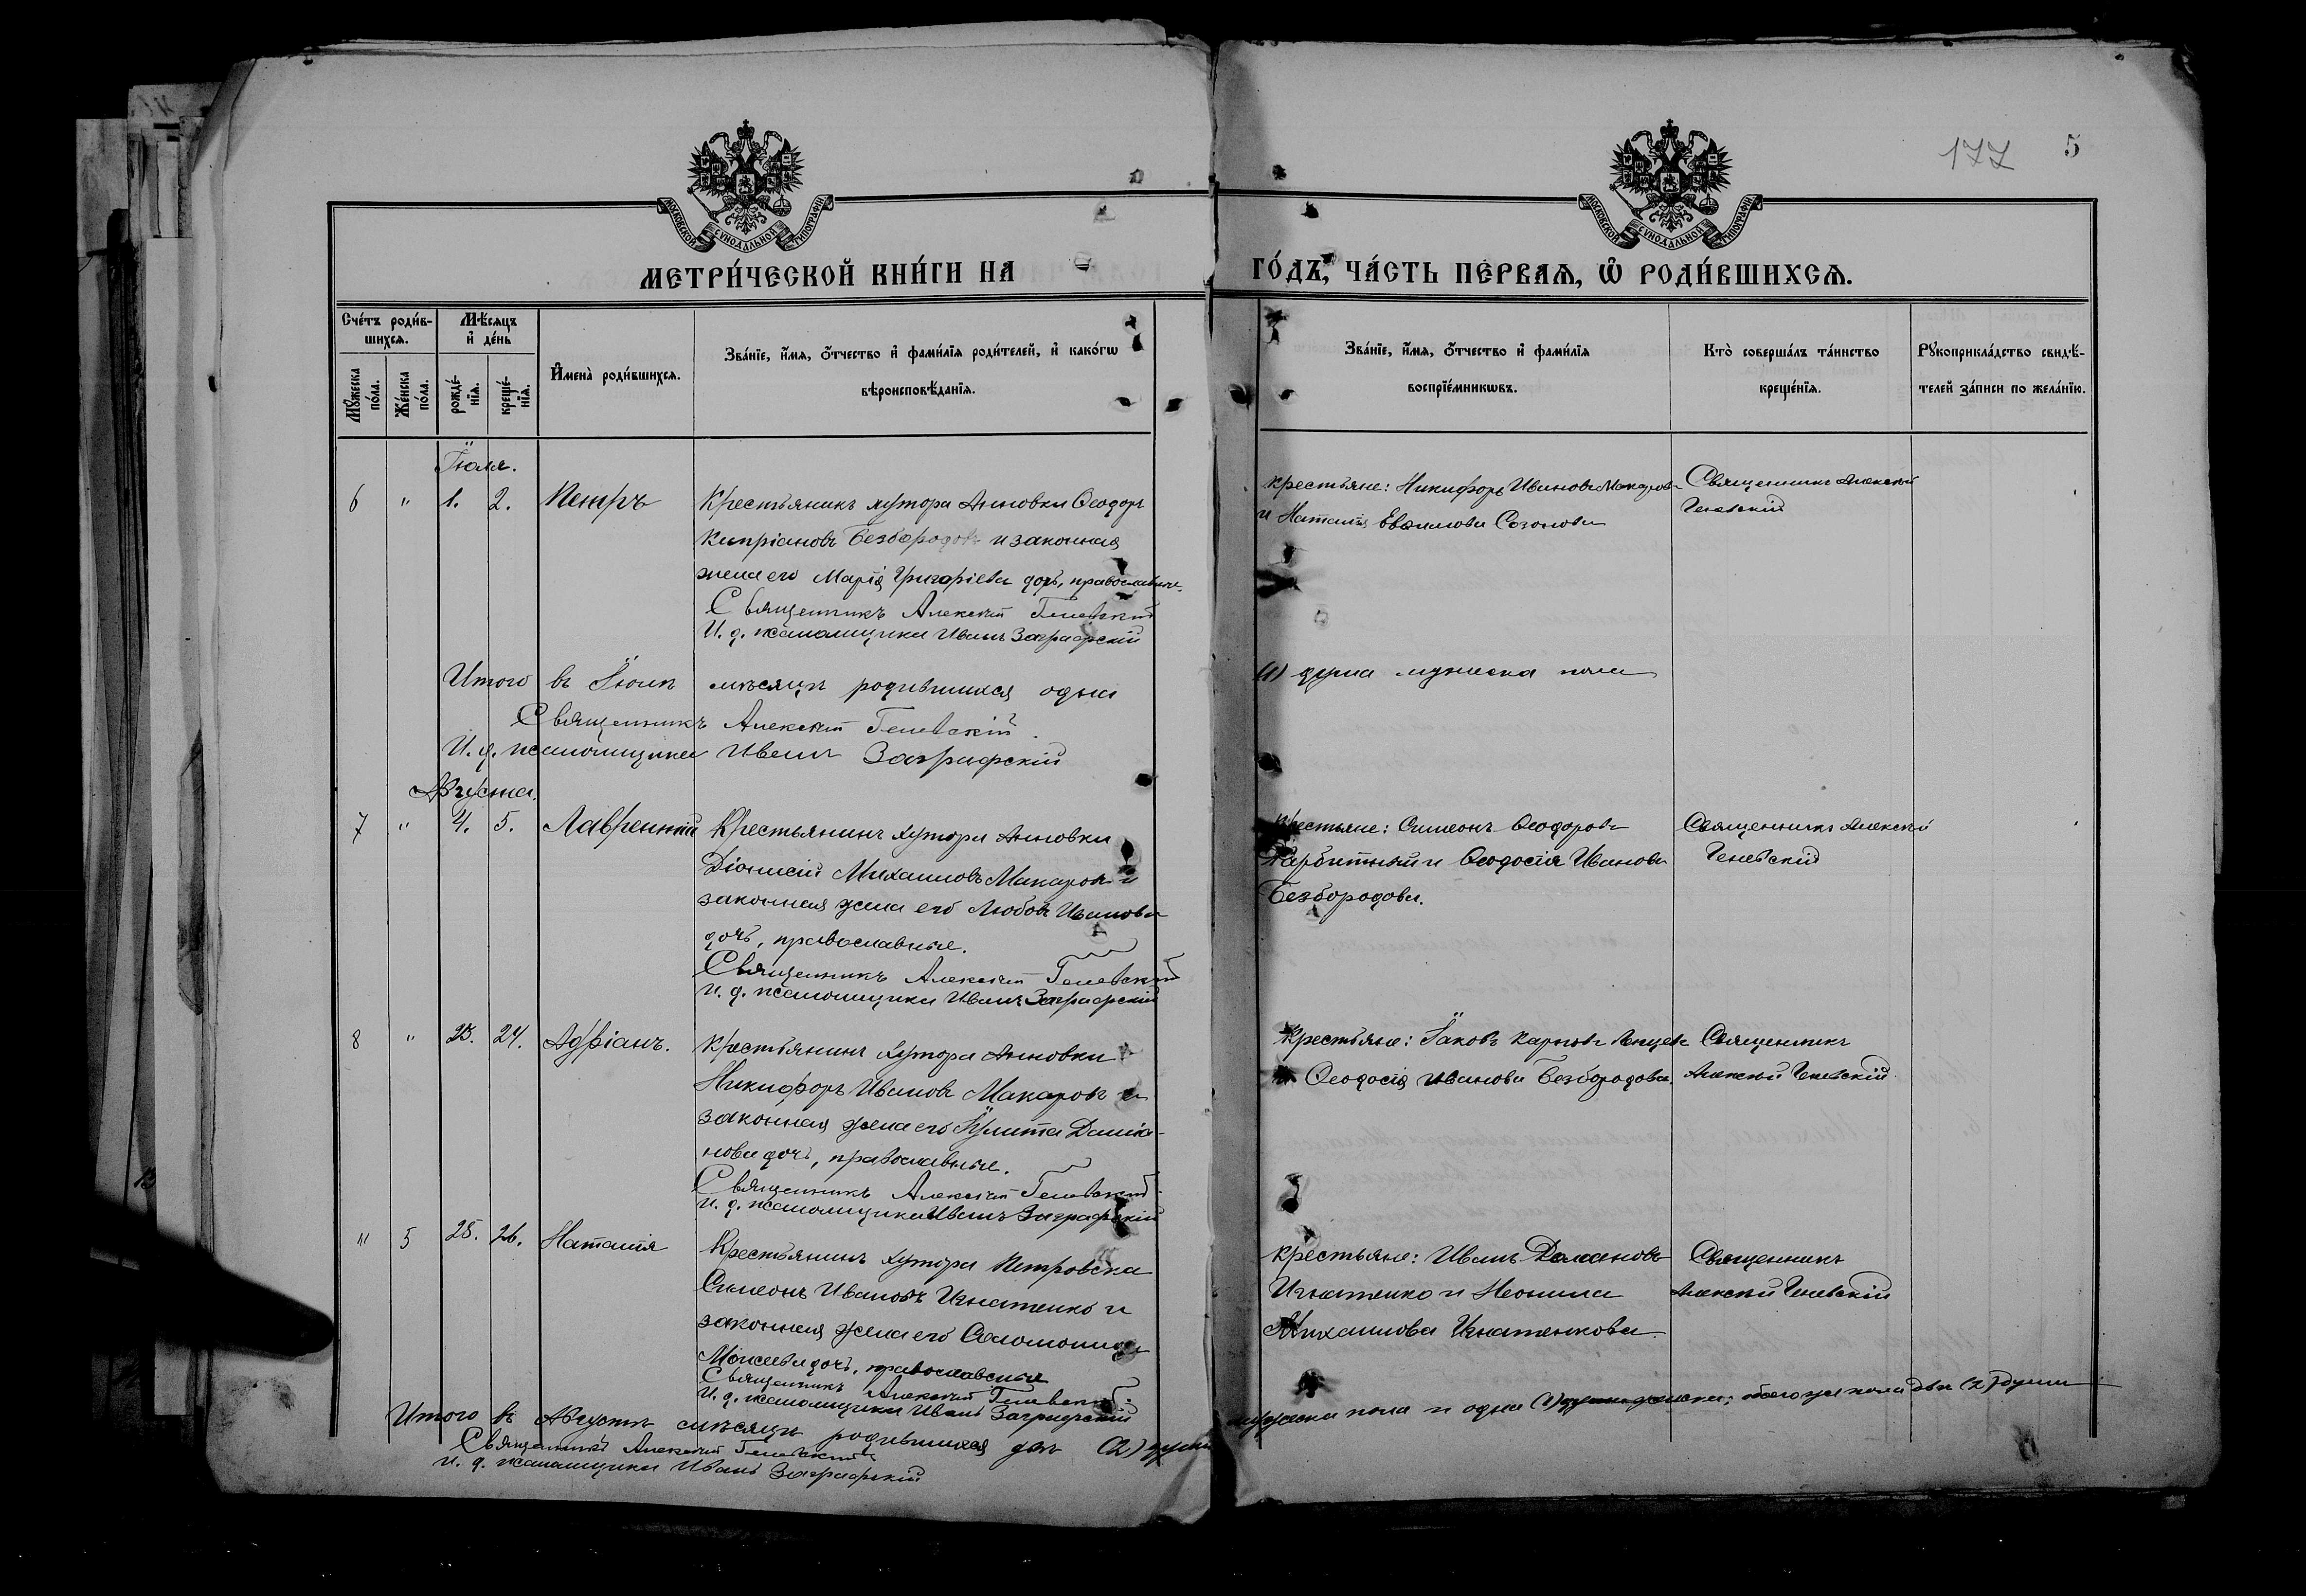 177 5
МОСКОВСКОЙ СѴНОДАЛЬНОЙ ТИПОГРАФІИ
МОСКОВСКОЙ СѴНОДАЛЬНОЙ ТИПОГРАФІИ
МЕТРИ́ЧЕСКОЙ КНИ́ГИ НА
ГО́ДЪ, ЧА́СТЬ ПЕ́РВАЯ, Ѡ РОДИ́ВШИХСЯ.
Сче́тъ роди́в-
шихся.
Мѣ́сяцъ
и де́нь
Му́жеска
по́ла.
Же́нска
по́ла.
рожде́-
нія.
креще́-
нія.
Имена̀ роди́вшихся.
Зва́ніе, и́мя, о́тчество и фами́лія роди́телей, и како́гѡ
вѣроисповѣ́данія.
Зва́ніе, и́мя, о́тчество и фами́лія
воспріе́мниковъ.
Кто̀ соверша́лъ та́инство
креще́нія.
Рꙋкоприкла́дство свидѣ́-
телей за́писи по жела́нію.
Іюля.
6 " 1. 2. Петръ
Крестьянинъ хутора Анновки Ѳеодоръ
Кипріановъ Безбородовъ и законная
жена его Марія Григоріева дочь, православные.
Священникъ Алексій Геневскій
И. д. псаломщика Иванъ Заграфскій
Крестьяне: Никифоръ Ивановъ Макаровъ
и Наталія Евѳимова Созонова
Священникъ Алексій
Геневскій
Итого въ Іюлѣ мѣсяцѣ родившихся одна
(1) душа мужеска пола
Священникъ Алексій Геневскій.
И. д. псаломщика Иванъ Заграфскій
Августа.
7 " 4. 5. Лаврентій
Крестьянинъ хутора Анновки
Діонисій Михаиловъ Макаровъ и
законная жена его Любовь Иванова
дочь, православные.
Священникъ Алексій Геневскій
И. д. псаломщика Иванъ Заграфскій
Крестьяне: Симеонъ Ѳеодоровъ
и Ѳеодосія Иванова
Безбородова.
Священникъ Алексій
Геневскій
8 " 23. 24. Адріанъ.
Крестьянинъ хутора Анновки
Никифоръ Ивановъ Макаровъ и
законная жена его Іулитта Даміа-
нова дочь, православные.
Священникъ Алексій Геневскій
И. д. псаломщика Иванъ Заграфскій
Крестьяне: Іаковъ Карповъ
и Ѳеодосія Иванова Безбородова.
Священникъ
Алексій Геневскій
" 5 25. 26. Наталія
Крестьянинъ хутора Петровска
Симеонъ Ивановъ Игнатенко и
законная жена его Соломонида
Моисеева дочь, православные
Священникъ Алексій Геневскій
И. д. псаломщика Иванъ Заграфскій
Крестьяне: Иванъ Даміановъ
Игнатенко и Неонила
Михаилова Игнатенкова
Священникъ
Алексій Геневскій
Итого въ Августѣ мѣсяцѣ родившихся двѣ (2) души
мужеска пола и одна (1) душа женска; обоего же пола
Священникъ Алексій Геневскій
И. д. псаломщика Иванъ Заграфскій